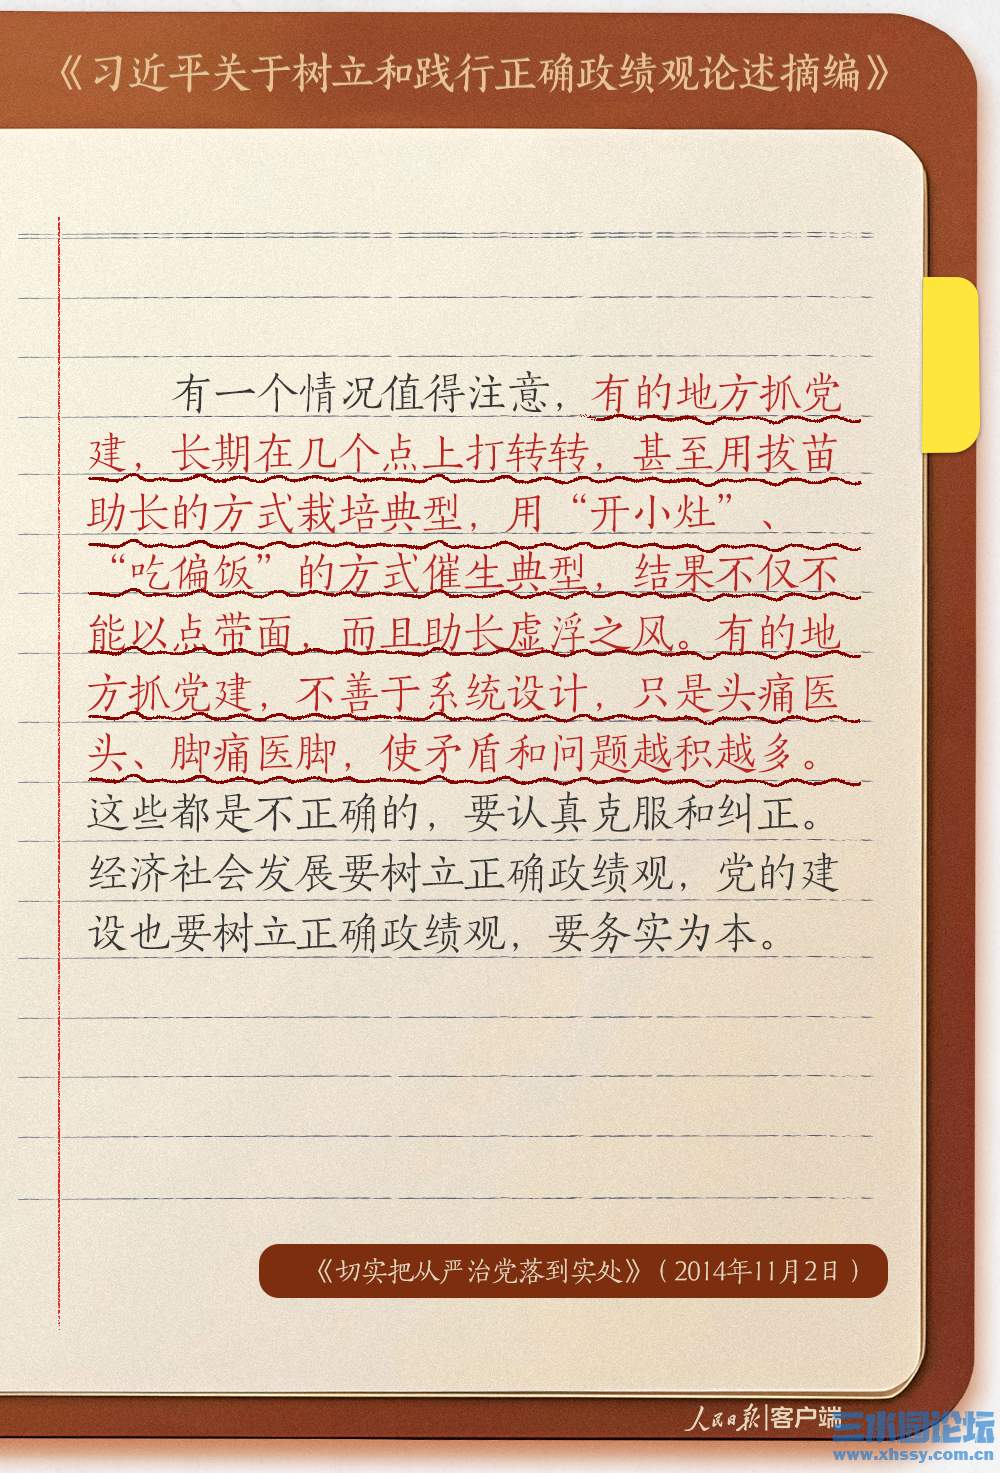 《习近平关于树立和践行正确政绩观论述摘编》
有一个情况值得注意，有的地方抓党
建，长期在几个点上打转转，甚至用拔苗
助长的方式栽培典型，用“开小灶”、
“吃偏饭”的方式催生典型，结果不仅不
能以点带面，而且助长虚浮之风。有的地
方抓党建，不善于系统设计，只是头痛医
头、脚痛医脚，使矛盾和问题越积越多。
这些都是不正确的，要认真克服和纠正。
经济社会发展要树立正确政绩观，党的建
设也要树立正确政绩观，要务实为本。
《切实把从严治党落到实处》（2014年11月2日）
人民日报|客户端
三水园论坛
www.xhssy.com.cn